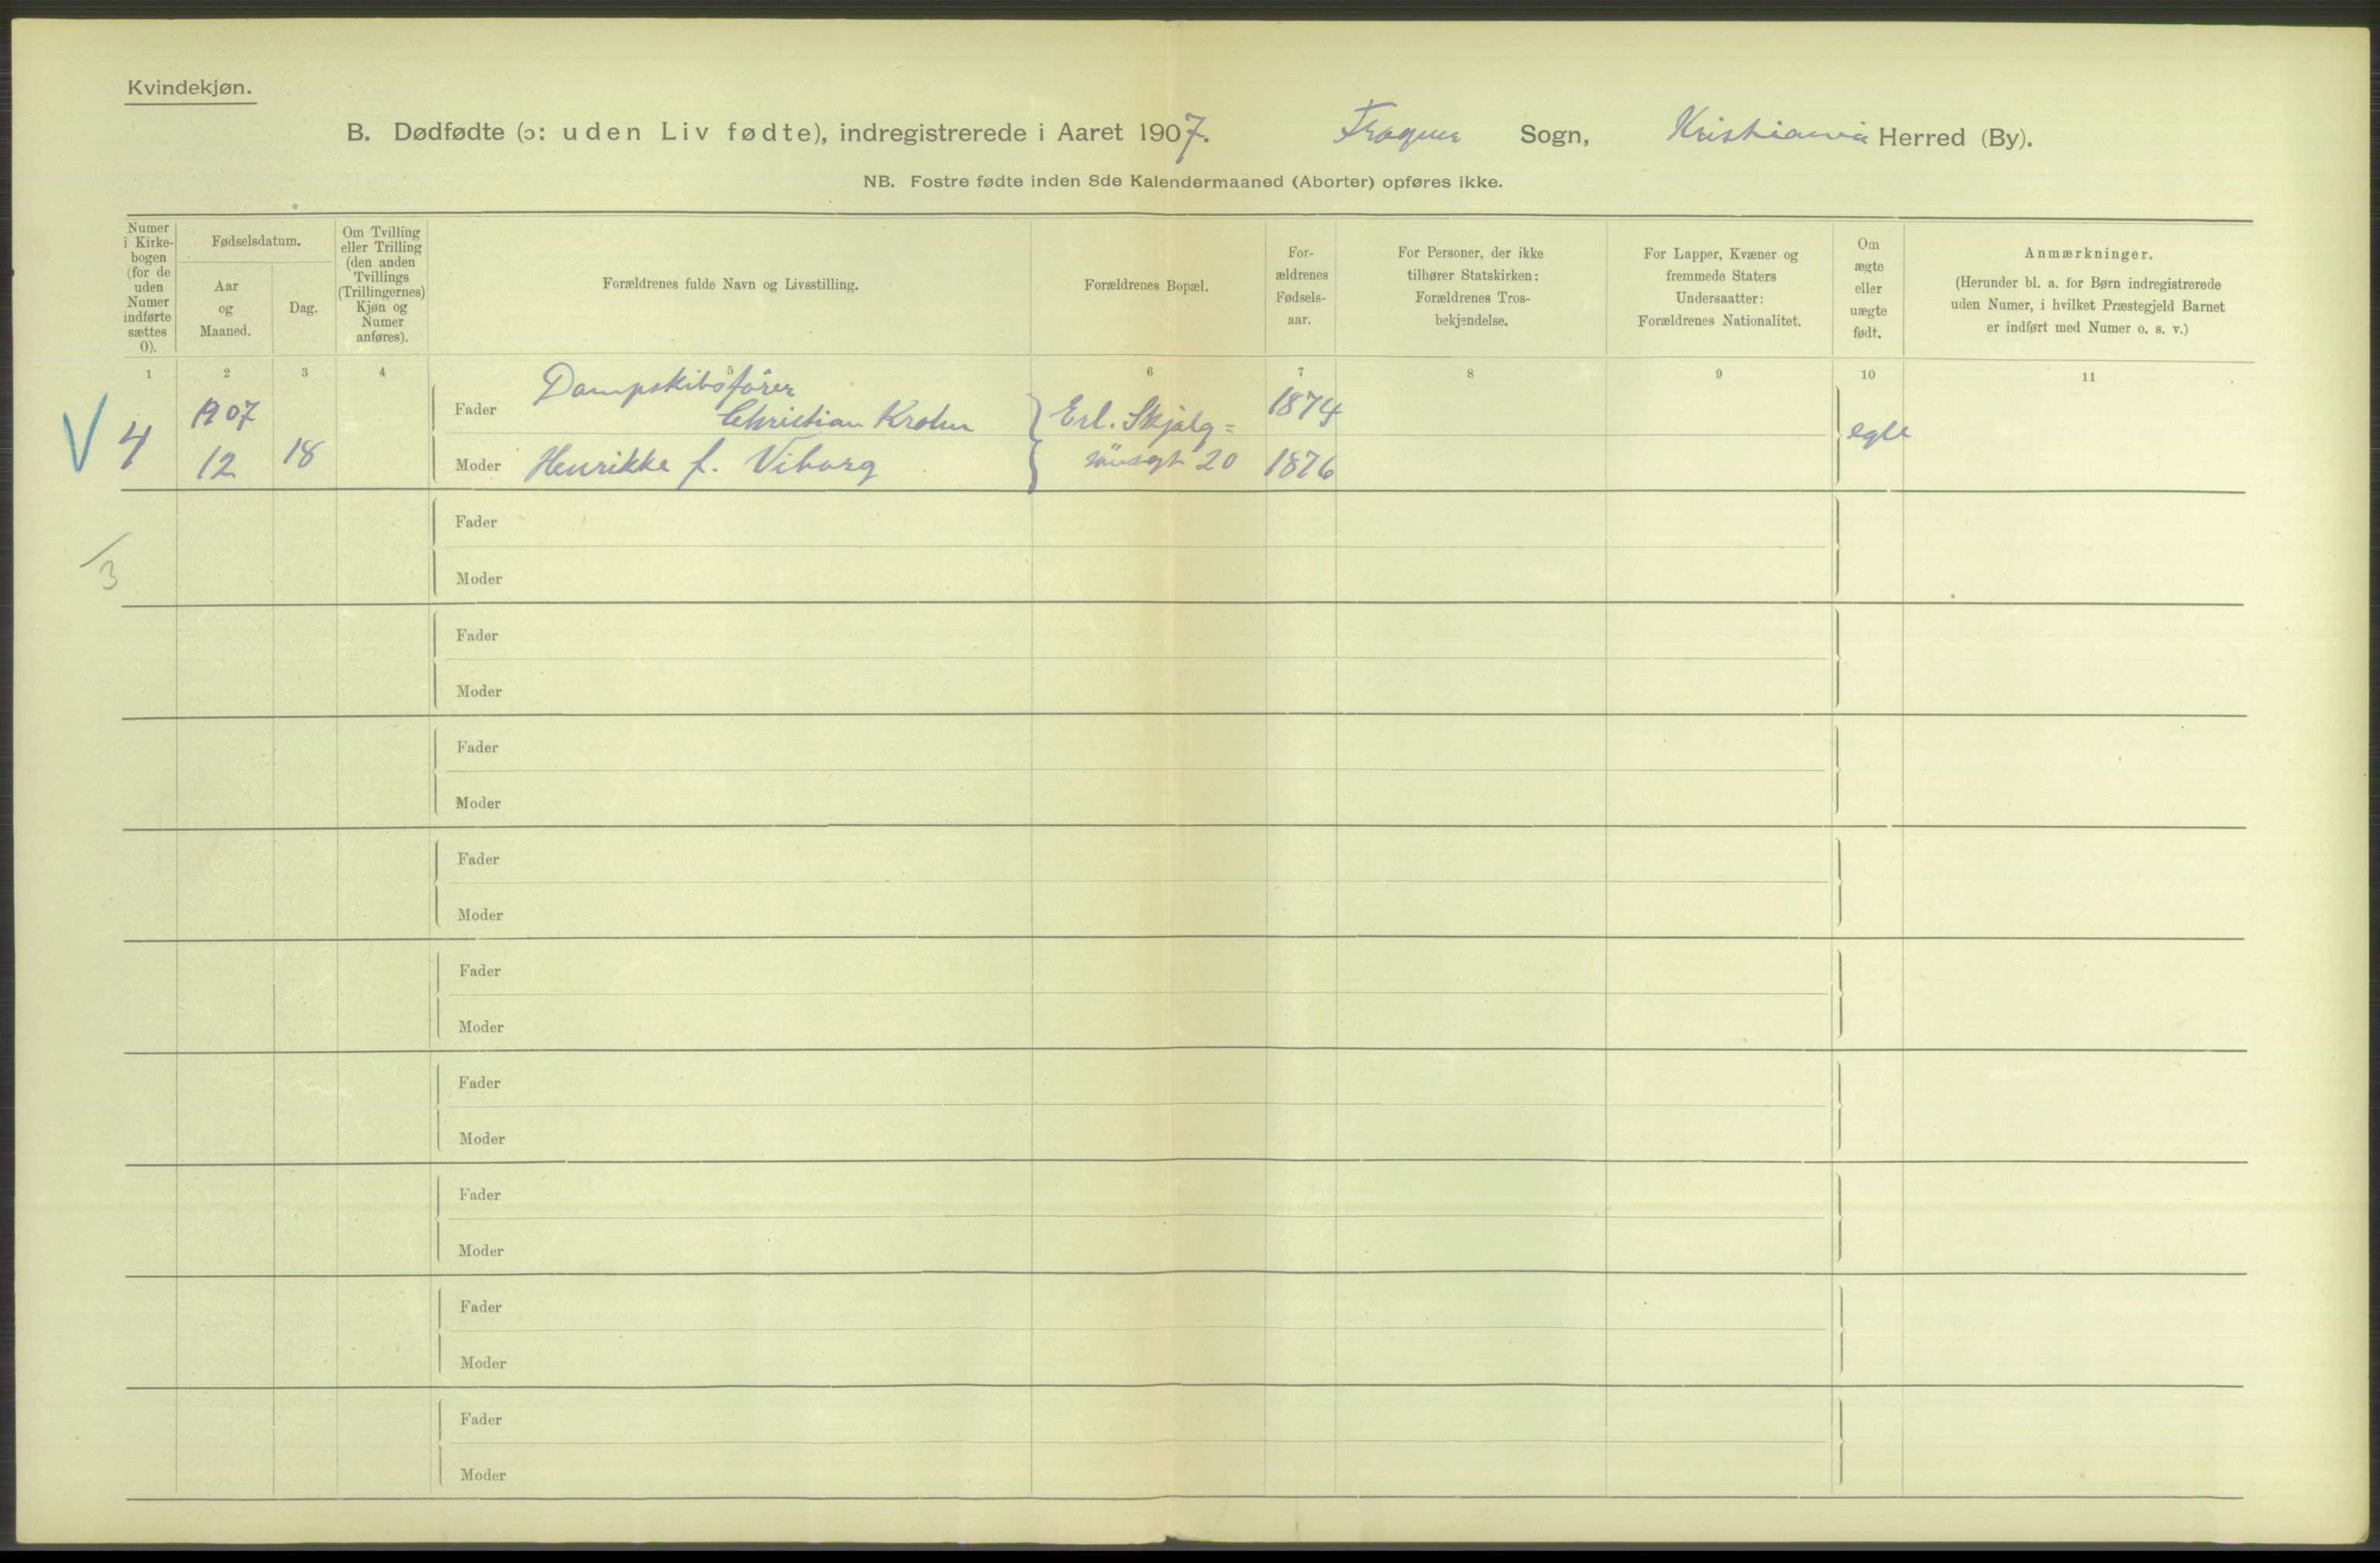 Kvindekjøn.
B. Dødfødte (ɔ: uden Liv fødte), indregistrerede i Aaret 1907. Frogner Sogn, Kristiania Herred (By).
NB. Fostre fødte inden 8de Kalendermaaned (Aborter) opføres ikke.
Numer i Kirke-
bogen
(for de
uden
Numer
indførte
sættes
0).
Fødselsdatum.
Aar
og
Maaned.
Dag.
Om Tvilling
eller Trilling
(den anden
Tvillings
(Trillingernes)
Kjøn og
Numer
anføres).
Forældrenes fulde Navn og Livsstilling.
Forældrenes Bopæl.
For-
ældrenes
Fødsels-
aar.
For Personer, der ikke
tilhører Statskirken:
Forældrenes Tros-
bekjendelse.
For Lapper, Kvæner og
fremmede Staters
Undersaatter:
Forældrenes Nationalitet.
Om
ægte
eller
uægte
født.
Anmærkninger.
(Herunder bl. a. for Børn indregistrerede
uden Numer, i hvilket Præstegjeld Barnet
er indført med Numer o. s. v.)
1 2 3 4 5 6 7 8 9 10 11
V 4 1907 12 18
Fader Dampskibsfører
Christian Krohn Erl. Skjalg= 1874
Moder Henrikke f. Viborg sønsgt 20 1876
egte
3
Fader
Moder
Fader
Moder
Fader
Moder
Fader
Moder
Fader
Moder
Fader
Moder
Fader
Moder
Fader
Moder
Fader
Moder